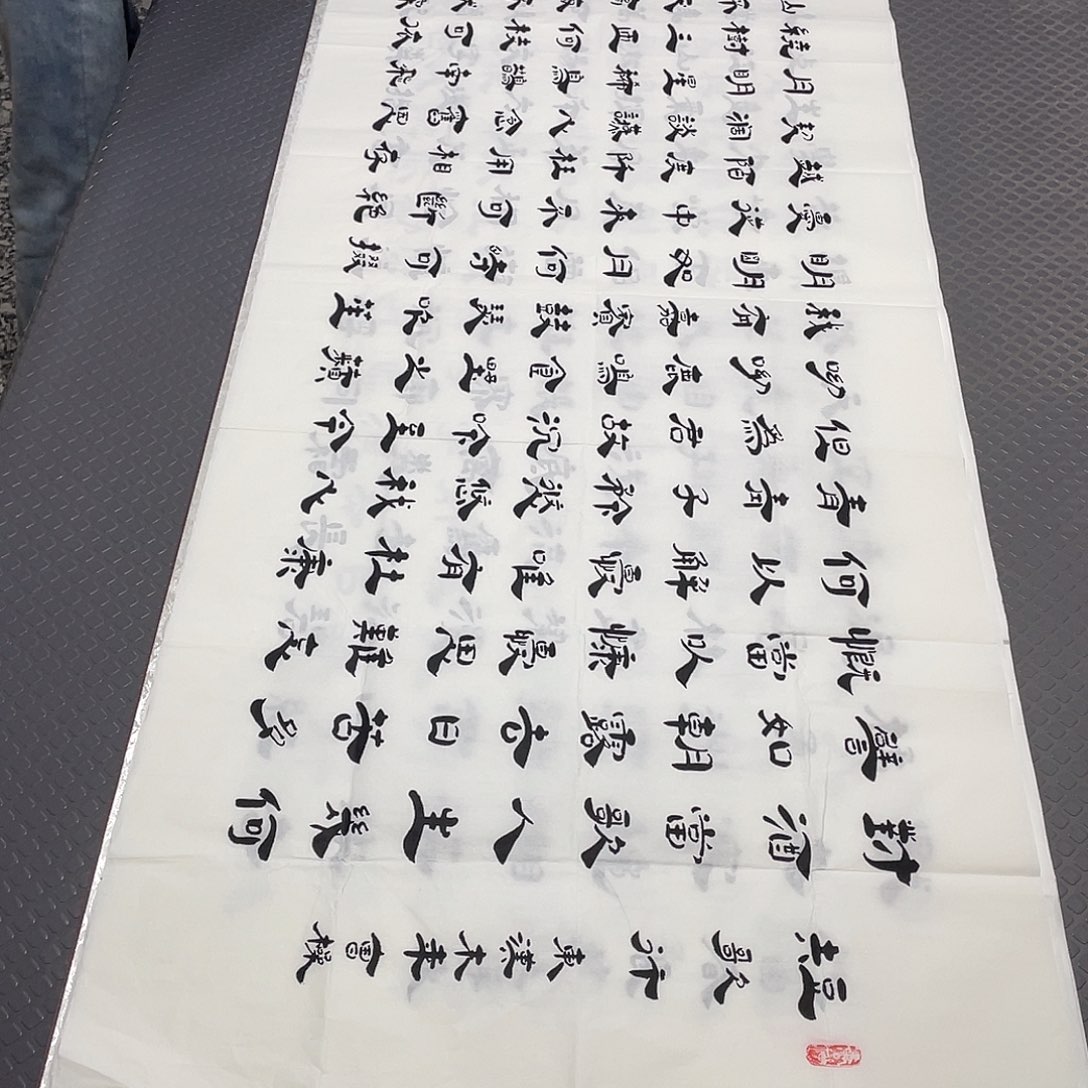 短歌行 東漢末年曹操
對酒當歌人生幾何
譬如朝露去日苦多
慨當以慷憂思難忘
何以解憂唯有杜康
青青子衿悠悠我心
但為君故沉吟至今
呦呦鹿鳴食野之蘋
我有嘉賓鼓瑟吹笙
明明如月何時可掇
憂從中來不可斷絕
越陌度阡枉用相存
契闊談讌心念舊恩
月明星稀烏鵲南飛
繞樹三匝何枝可依
山